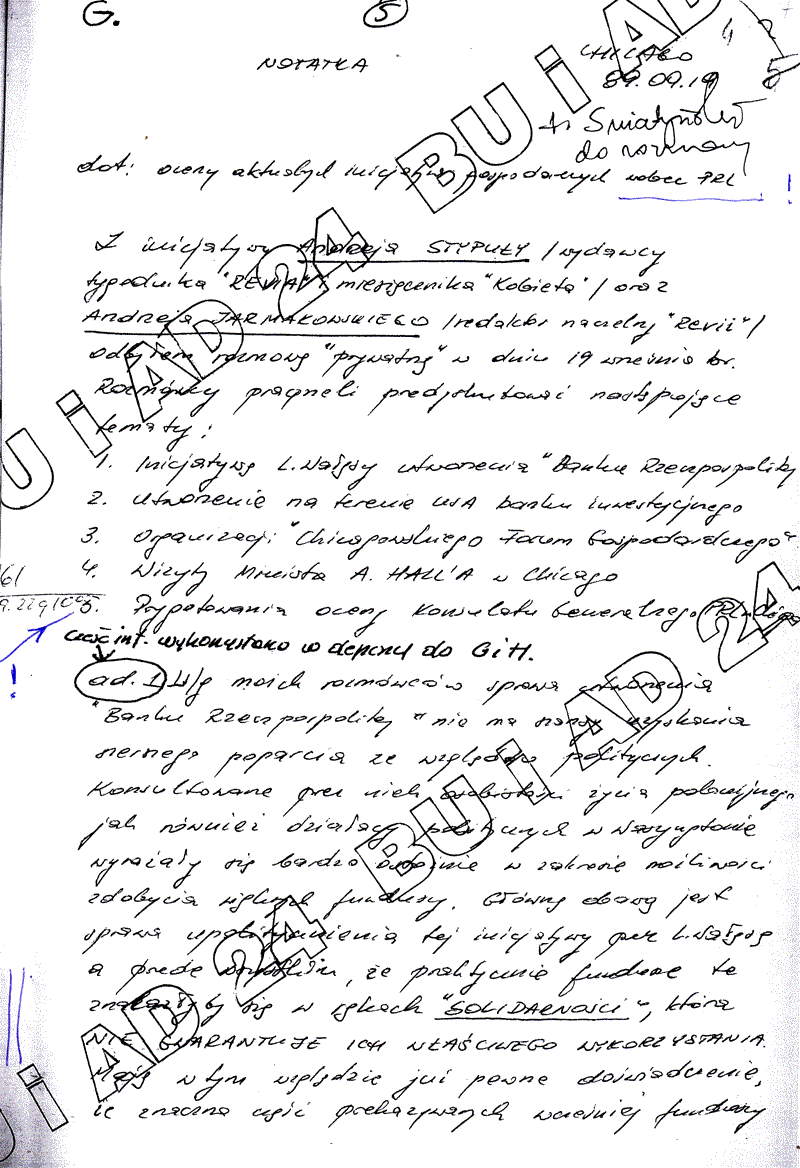 G.
5
4 2
5
NOTATKA
CHICAGO
89.09.19
do rozmowy
dot: oceny aktualnych inicjatyw gospodarczych wobec PRL
!
Z inicjatywy Andrzeja STYPUŁY /wydawcy
tygodnika "REVIA" i miesięcznika "Kobieta"/ oraz
Andrzeja JARMAKOWSKIEGO /redaktor naczelny "Revii"/
odbyłem rozmowę "prywatną" w dniu 19 września br.
Rozmówcy pragnęli przedyskutować następujące
tematy:
1. Inicjatywę L. Wałęsy utworzenia "Banku Rzeczpospolitej
2. Utworzenie na terenie USA banku inwestycyjnego
3. Organizacji "Chicagowskiego Forum Gospodarczego"
4. Wizyty Ministra A. HALL'A w Chicago
5. Przygotowania oceny Konsulatu Generalnego PRL
część inf. wykorzystano w depeszy do G i H.
!
ad. 1 W/g moich rozmówców sprawa utworzenia
"Banku Rzeczpospolitej" nie ma szansy uzyskania
szerszego poparcia ze względów politycznych.
Konsultowane przez nich osobistości życia polonijnego
jak również działacy politycznych w Waszyngtonie
wyrażały się bardzo ostrożnie w zakresie możliwości
zdobycia większych funduszy. Główną obawą jest
sprawa upolitycznienia tej inicjatywy przez L. Wałęsę
a przede wszystkim, że praktycznie fundusze te
znalazłyby się w rękach "SOLIDARNOŚCI", która
NIE GWARANTUJE ICH WŁAŚCIWEGO WYKORZYSTANIA.
Mają w tym względzie już pewne doświadczenie,
że znaczna część przekazywanych wcześniej funduszy
BU i AD 24 BU i AD
U i AD 24
BU i AD 24
BU i AD 24